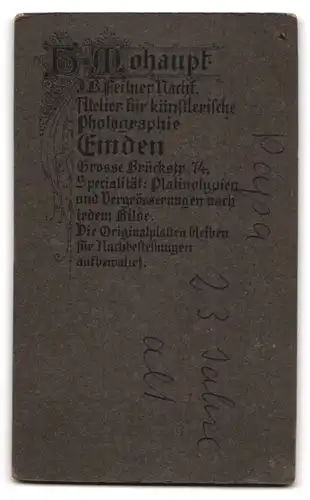 H. Mohaupt
J. B. Feilner Nachf.
Atelier für künstlerische
Photographie
Emden
Grosse Brückstr. 74.
Specialität: Platinotypien
und Vergrösserungen nach
jedem Bilde.
Die Originalplatten bleiben
für Nachbestellungen
aufbewahrt.
Papa
23 Jahre
alt